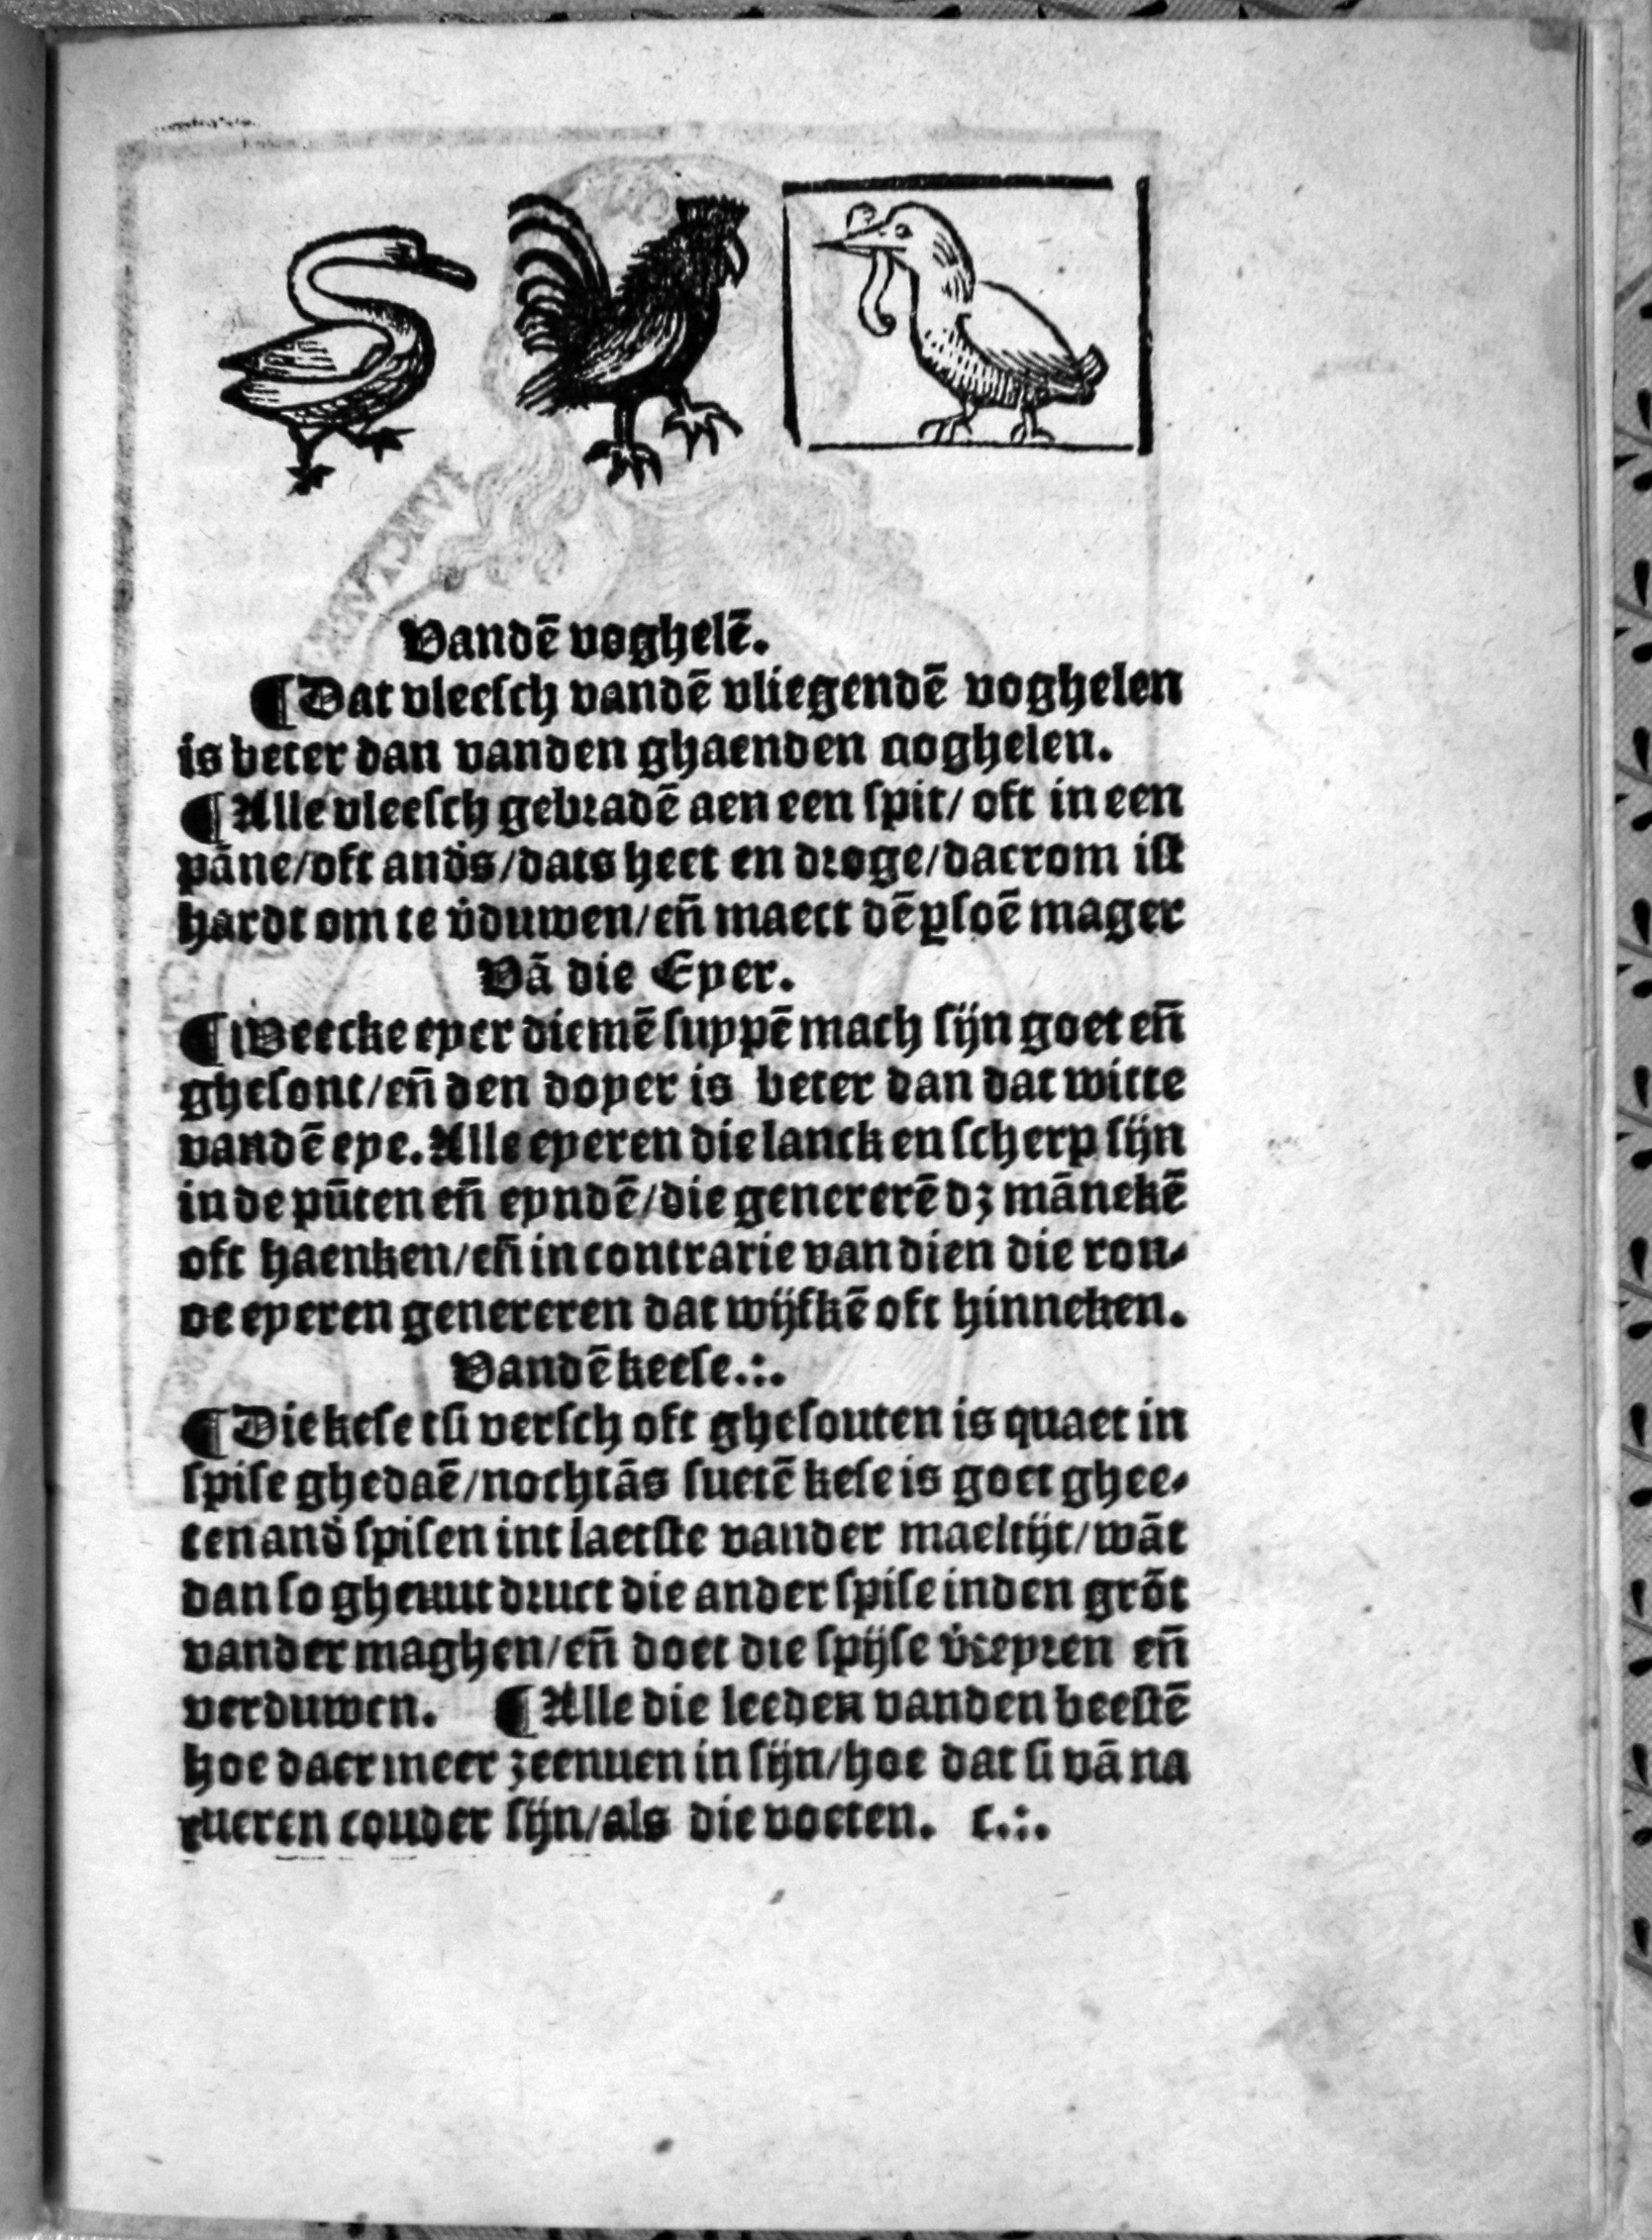 Vandē voghelē.
¶ Dat vleesch vandē vliegendē voghelen
is beter dan vanden ghaenden noghelen.
¶ Alle vleesch gebradē aen een spit/ oft in een
pāne/oft anďs/dats heet en droge/daerom ist
hardt om te v̇duwen/eñ maect dē ꝑsoē mager
Vā die Eyer.
¶ Weecke eyer diemē suppē mach sijn goet eñ
ghesont/eñ den doyer is beter dan dat witte
vandē eye. Alle eyeren die lanck en scherp sijn
in de pūten eñ eyndē/die genererē dꝫ mānekē
oft haenken/eñ in contrarie van dien die ron⸗
de eyeren genereren dat wijfkē oft hinneken.
Vandē keese.:.
¶ Die kese tsi versch oft ghesouten is quaet in
spise ghedaē/nochtās suetē kese is goet ghee⸗
ten anď spisen int laetste vander maeltijt/wāt
dan so druct die ander spise inden grōt
vander maghen/eñ doet die spijse eñ
verduwen. ¶ Alle die leeden vanden beestē
hoe daer meer zeenuen in sijn/hoe dat si vā na
tueren couder sijn/als die voeten. c.:.